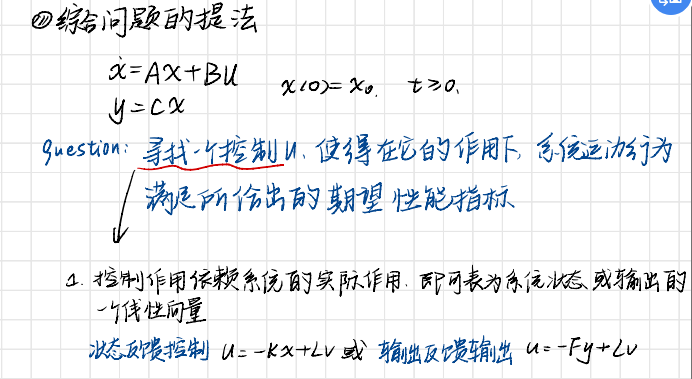 ㈢ 综合问题的提法
ẋ=Ax+Bu x(0)=x₀. t≥0.
y=Cx
question: 寻找一个控制u, 使得在它的作用下, 系统运动行为
满足所给出的期望性能指标
1. 控制作用依赖系统的实际作用. 即可表为系统状态或输出的
一个线性向量
状态反馈控制 u=-Kx+Lv 或 输出反馈输出 u=-Fy+Lv